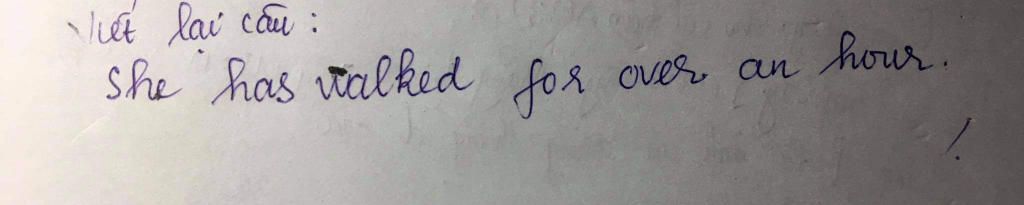 Viết lại câu :
She has walked for over an hour.